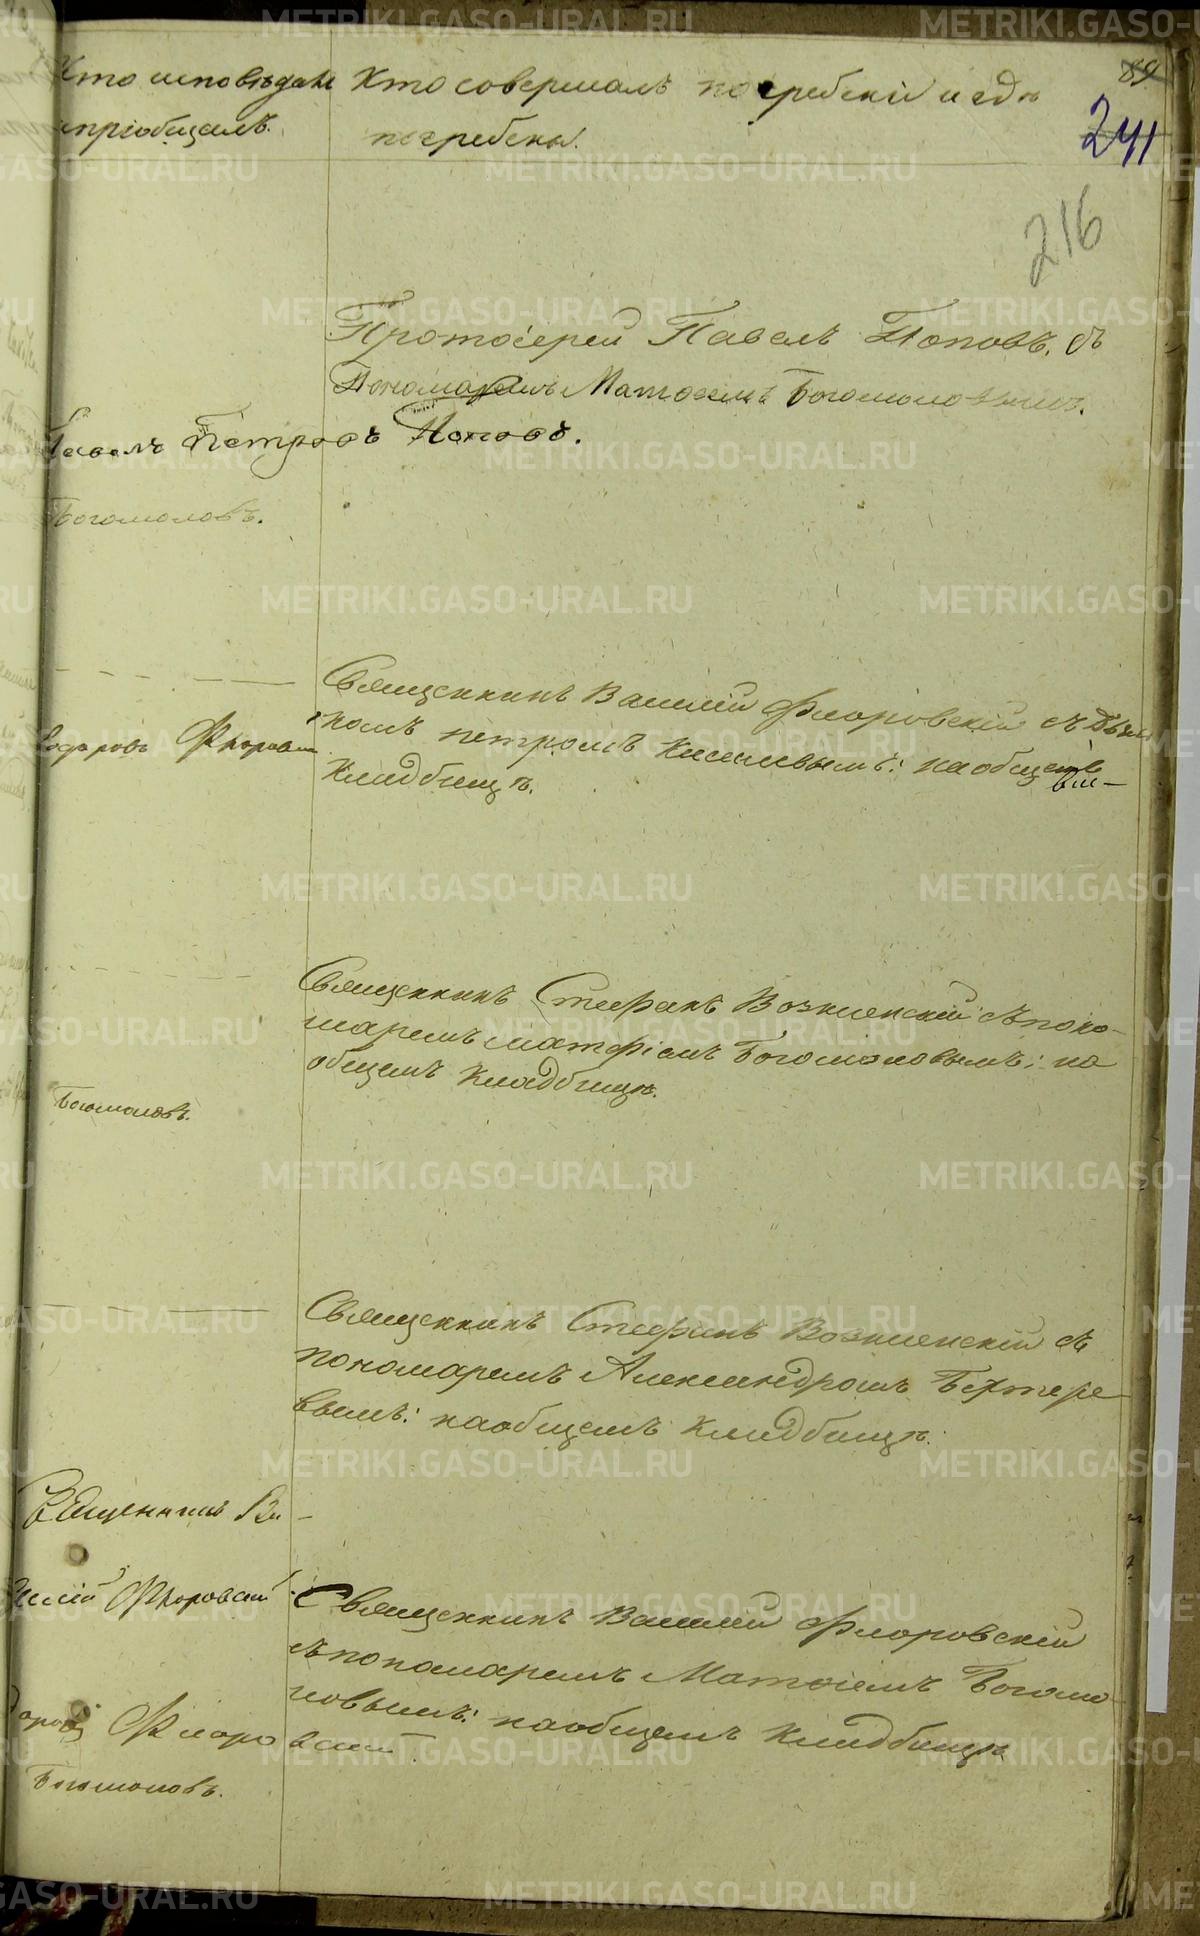 Кто исповѣдалъ
и пріобщалъ.
Кто совершалъ погребеніе и гдѣ
погребены.
89
241
216
Протоіерей Павелъ Поповъ, съ
Пономаремъ Матѳеемъ Богомоловымъ.
Павелъ Петровъ Поповъ.
Богомоловъ.
Священникъ Василій Флоровскій съ Дьяч
комъ Петромъ Киселевымъ: на общемъ
Кладбищѣ.
Флоровскі
Священникъ Стефанъ Вознесенскій съ поно-
маремъ Матфіемъ Богомоловымъ; на
общемъ Кладбищѣ.
Богомоловъ.
Священникъ Стефанъ Вознесенскій съ
пономаремъ Александромъ Бехтере
вымъ: на общемъ Кладбищѣ.
Священникъ Ва-
силій Флоровскій
Священникъ Василій Флоровскій
съ пономаремъ Матѳіемъ Богомо-
ловымъ: на общемъ Кладбищѣ
Флоровскій.
Богомоловъ.
METRIKI.GASO-URAL.RU